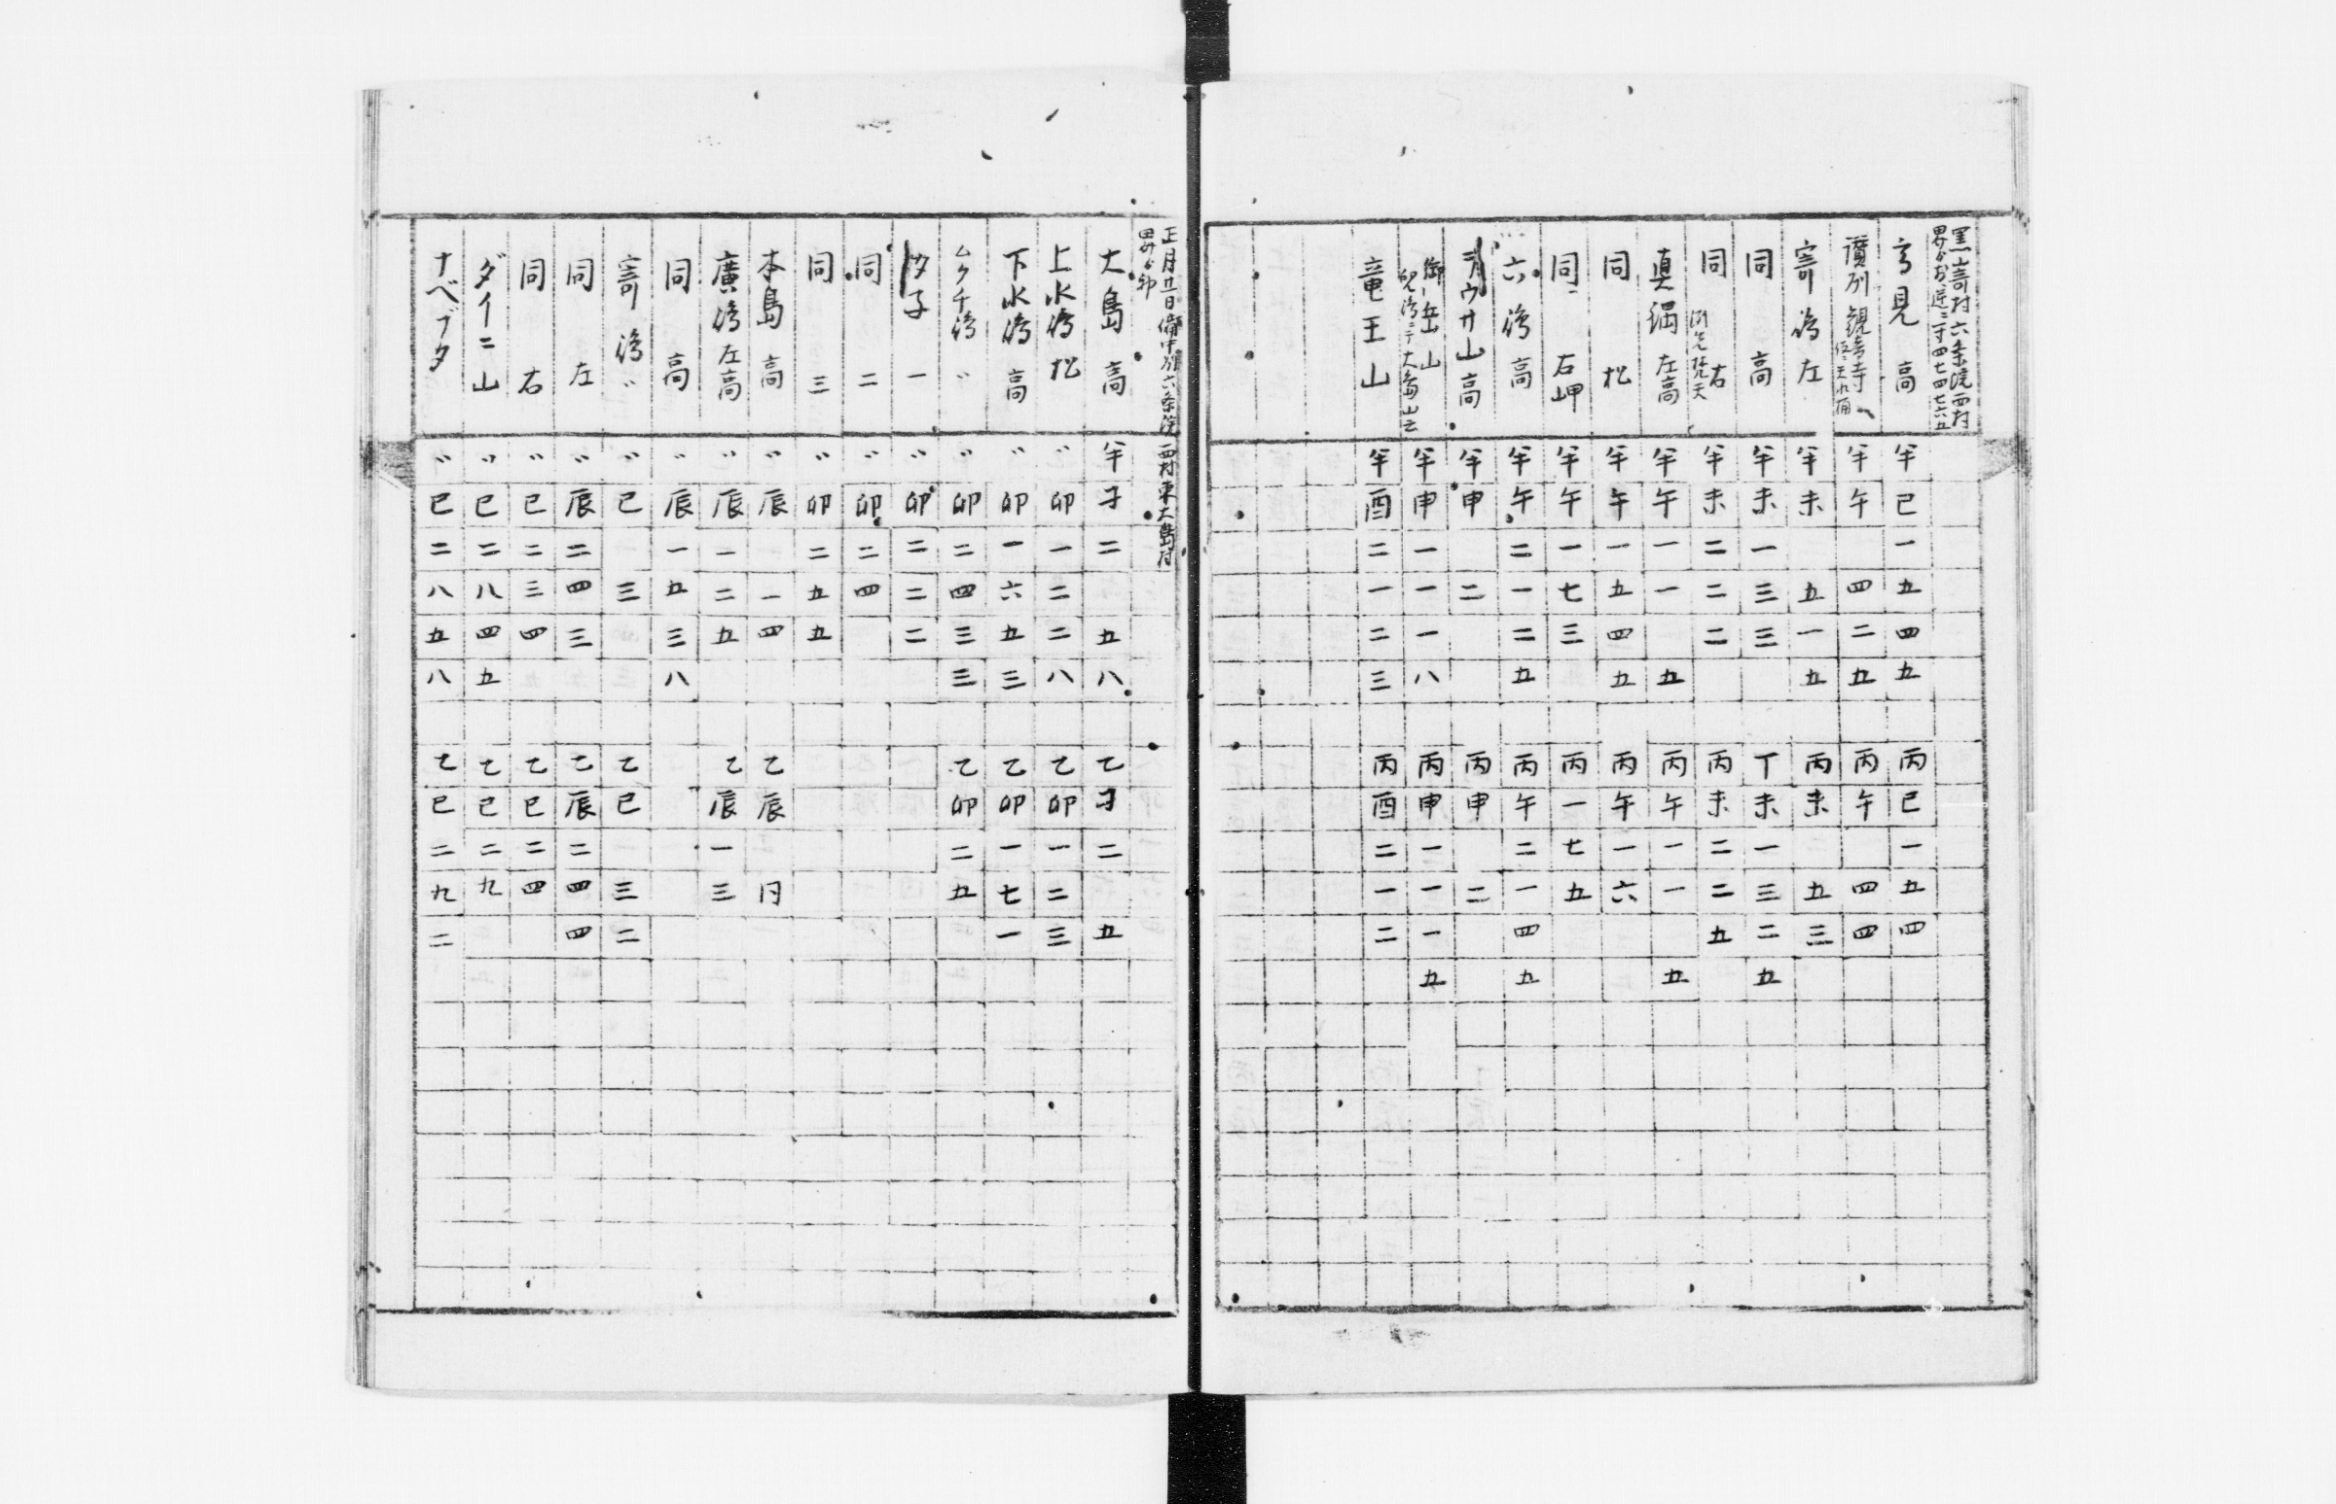 黒嵜村六条院西村
高見 高 半巳一五四五 丙巳一五四
讃州観音寺 半午四二五 丙午四四
寄島左 半未五一五 丙未五三
同 高 半未一三三 丁未一三二五
同 右 半未二二二 丙未二二五
真鍋左高 半午一一五 丙午一一五
同 松 半午一五四五 丙午一六
同 右岬 半午一七三 丙一七五
六島高 半午二一二五 丙午二一四五
山高 半申二 丙申二
御岳山 半申一一一八 丙申一一一五
竜王山 半酉二一二三 丙酉二一二
正月廿一日備中州六条院西村東大島村
大島高 半子二五八 乙子二五
上水島松 〃卯一二二八 乙卯一二三
下水島高 〃卯一六五三 乙卯一七一
ムクチ島〃 〃卯二四三三 乙卯二五
タ子一 〃卯二二二
同二 〃卯二四
同三 〃卯二五五
本島高 〃辰一四 乙辰同
廣島左高 〃辰一二五 乙辰一三
同 高 〃辰一五三八
寄島〃 〃巳三 乙巳三二
同 左 〃辰二四三 乙辰二四四
同 右 〃巳二三四 乙巳二四
ダイニ山 〃巳二八四五 乙巳二九
ナベブタ 〃巳二八五八 乙巳二九二